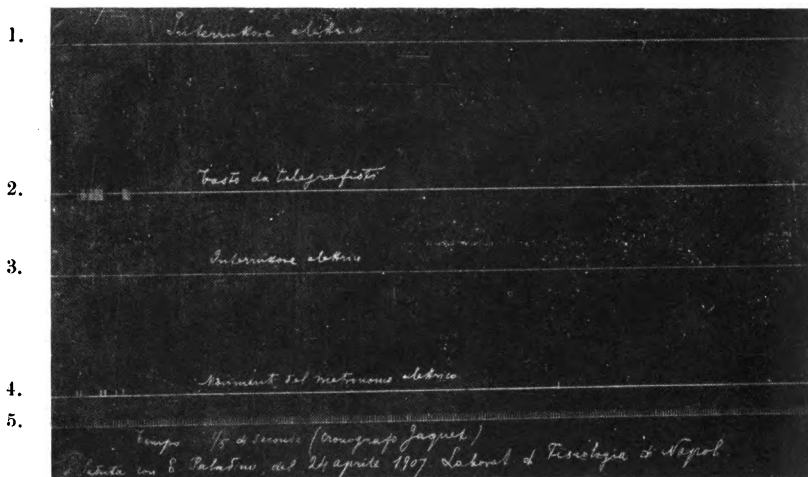 1. Interruttore elettrico
2. Tasto da telegrafisti
3. Interruttore elettrico
4. Movimenti del metronomo elettrico
5.
Tempo 1/5 di secondo (Cronografo Jaquet)
Seduta con E. Paladino, del 24 aprile 1907. Laborat di Fisiologia di Napoli